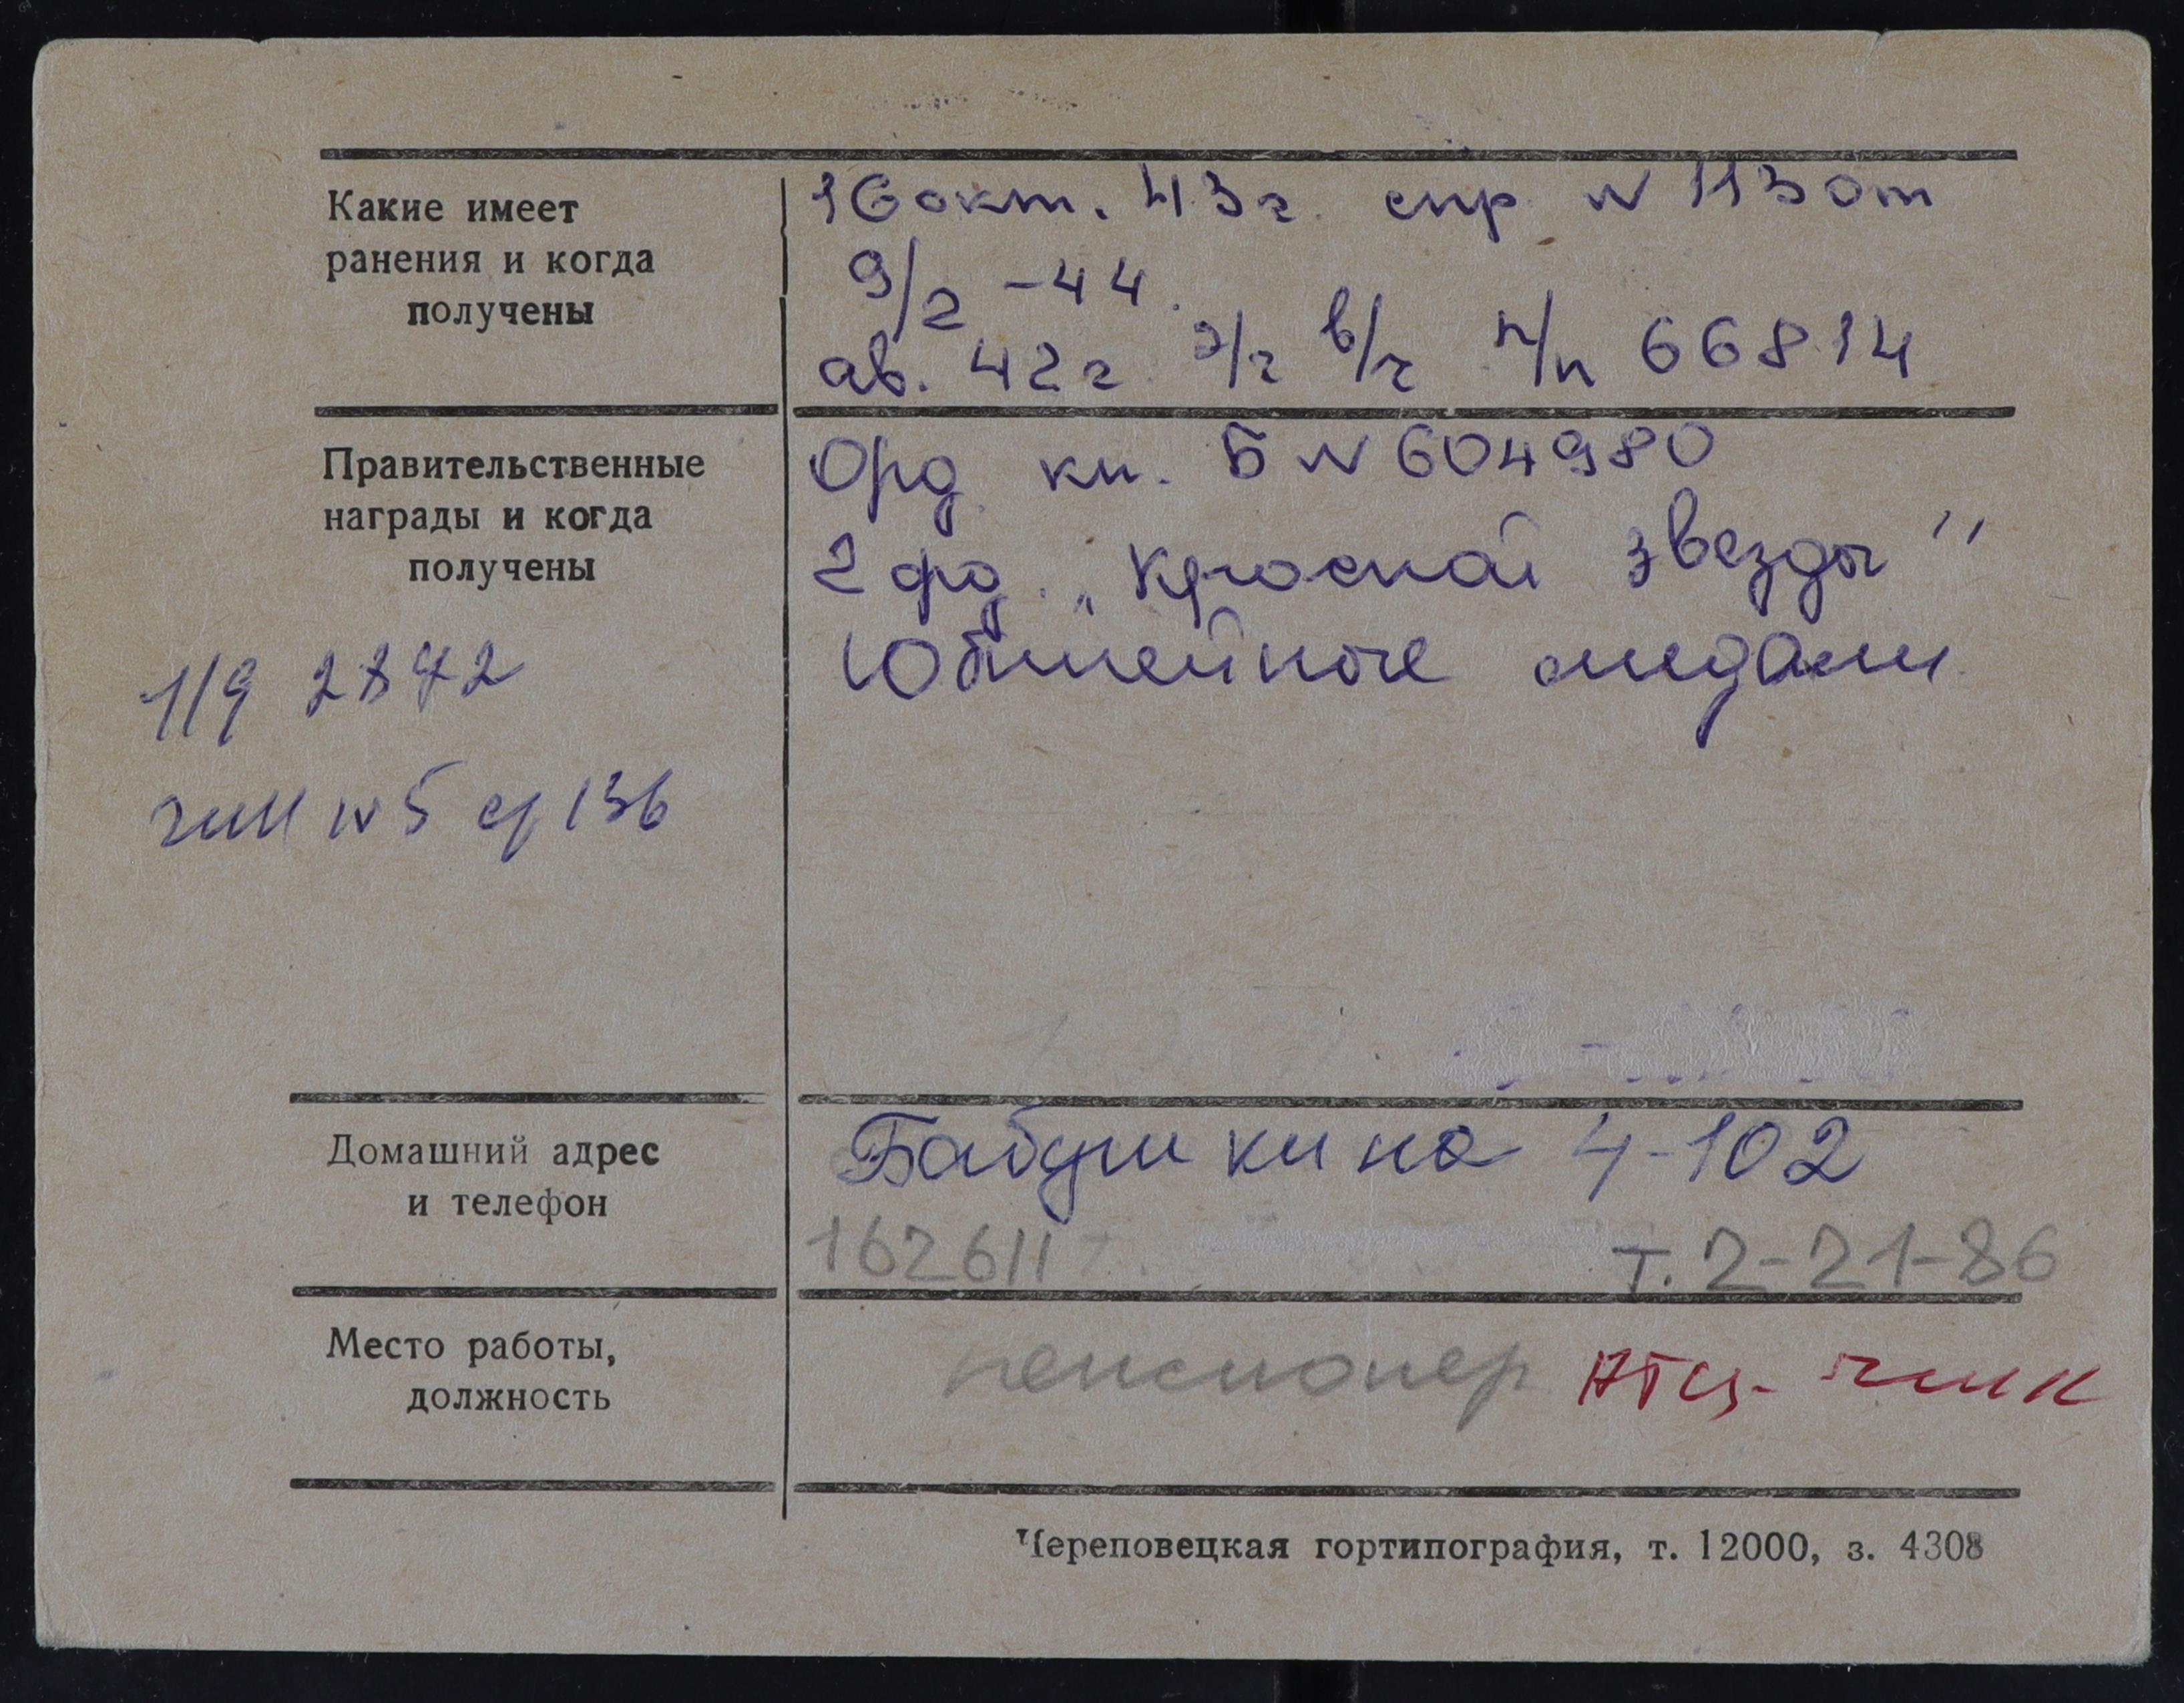 Какие имеет
ранения и когда
получены
16 окт. 43 г. спр. N 113 от
9/2 -44.
ав. 42 г. э/г в/г п/п 66814
Правительственные
награды и когда
получены
Орд. кн. Б N 604980
2 орд. "Красной звезды"
Юбилейные медали
119 2872
N 5 136
Домашний адрес
и телефон
Бабушкина 4-102
162611
т. 2-21-86
Место работы,
должность
пенсионер АТЦ-
Череповецкая гортипография, т. 12000, з. 4308